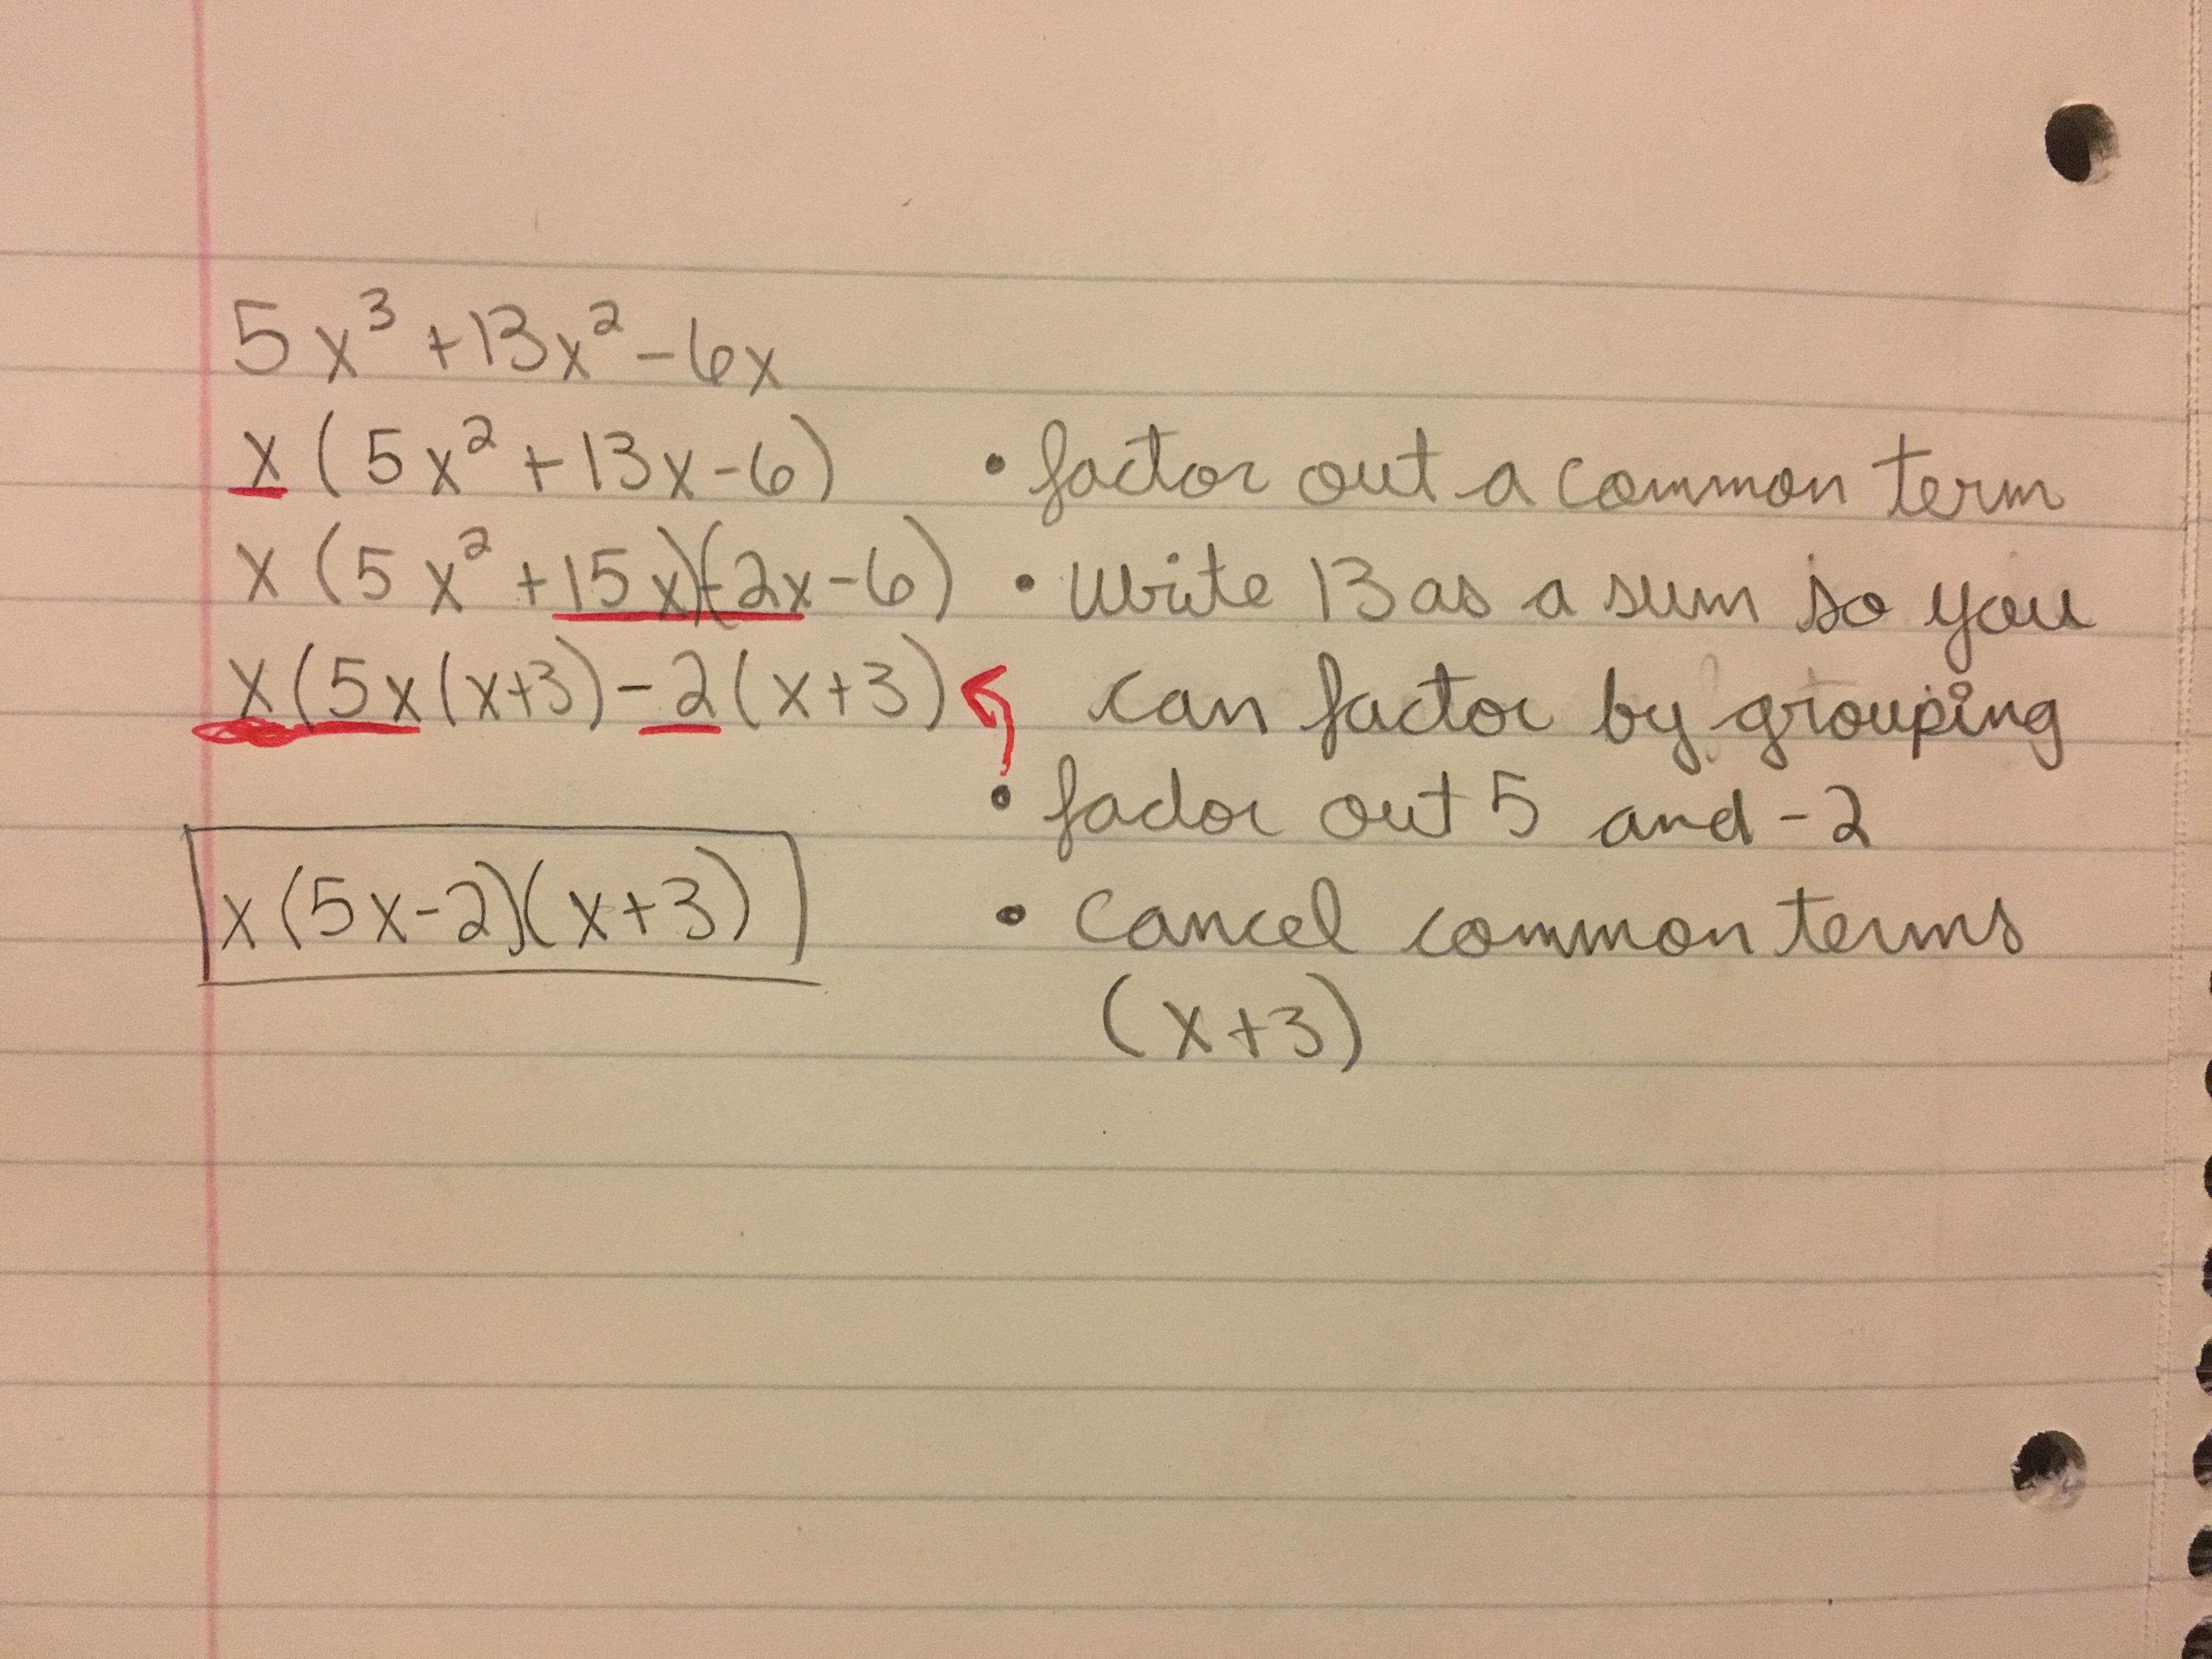 5x³ +13x² -6x
x(5x² +13x-6) • factor out a common term
x(5x² +15x)(-2x-6) • Write 13 as a sum so you
x(5x(x+3)-2(x+3) can factor by grouping
• factor out 5 and -2
x(5x-2)(x+3) • Cancel common terms
(x+3)